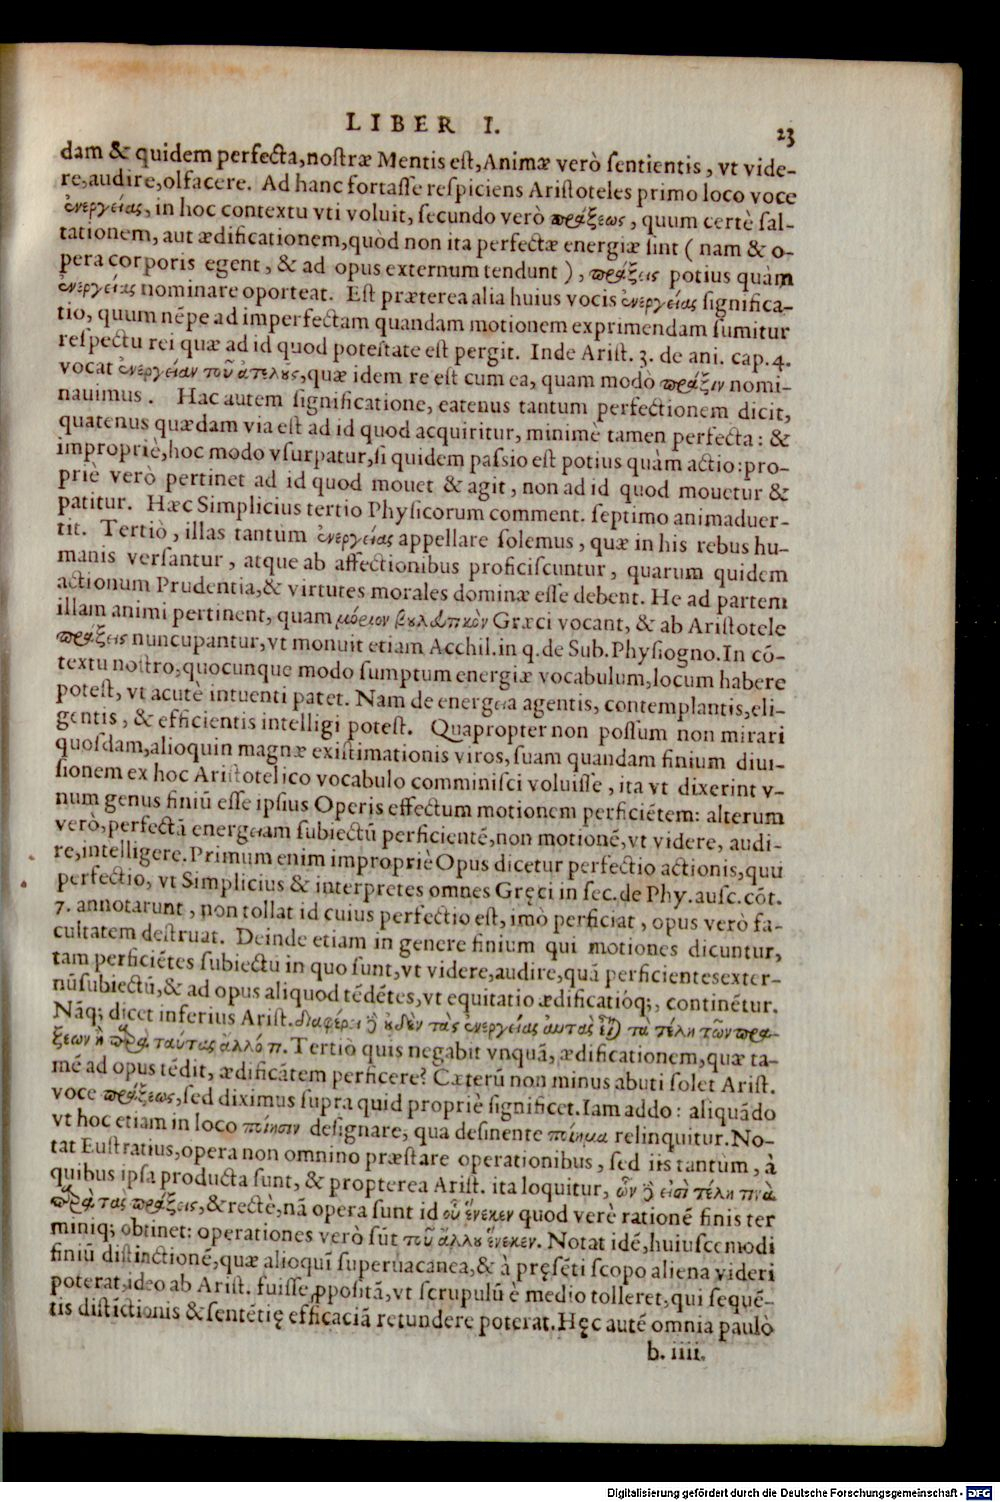 LIBER I. 23
dam & quidem perfecta, nostræ Mentis est, Animæ verò sentientis, vt vide-
re, audire, olfacere. Ad hanc fortasse respiciens Aristoteles primo loco voce
ἐνεργείας, in hoc contextu vti voluit, secundo verò πράξεως, quum certè sal-
tationem, aut ædificationem, quòd non ita perfectæ energiæ sint (nam & o-
pera corporis egent, & ad opus externum tendunt), πράξεις potius quàm
ἐνεργείας nominare oporteat. Est præterea alia huius vocis ἐνεργείας significa-
tio, quum nēpe ad imperfectam quandam motionem exprimendam sumitur
respectu rei quæ ad id quod potestate est pergit. Inde Arist. 3. de ani. cap. 4.
vocat ἐνεργείαν τοῦ ἀτελοῦς, quæ idem re est cum ea, quam modò πράξιν nomi-
nauimus. Hac autem significatione, eatenus tantum perfectionem dicit,
quatenus quædam via est ad id quod acquiritur, minimè tamen perfecta: &
impropriè, hoc modo vsurpatur, si quidem passio est potius quàm actio: pro-
priè verò pertinet ad id quod mouet & agit, non ad id quod mouetur &
patitur. Hæc Simplicius tertio Physicorum comment. septimo animaduer-
tit. Tertiò, illas tantùm ἐνεργείας appellare solemus, quæ in his rebus hu-
manis versantur, atque ab affectionibus proficiscuntur, quarum quidem
actionum Prudentia, & virtutes morales dominæ esse debent. He ad partem
illam animi pertinent, quam μόριον βουλευτικὸν Græci vocant, & ab Aristotele
πράξεις nuncupantur, vt monuit etiam Acchil. in q. de Sub. Physiogno. In cō-
textu nostro, quocunque modo sumptum energiæ vocabulum, locum habere
potest, vt acutè intuenti patet. Nam de energeia agentis, contemplantis, eli-
gentis, & efficientis intelligi potest. Quapropter non possum non mirari
quosdam, alioquin magnæ existimationis viros, suam quandam finium diui-
sionem ex hoc Aristotelico vocabulo comminisci voluisse, ita vt dixerint v-
num genus finiū esse ipsius Operis effectum motionem perficiētem: alterum
verò, perfectā energeiam subiectū perficientē, non motionē, vt videre, audi-
re, intelligere. Primum enim impropriè Opus dicetur perfectio actionis, quū
perfectio, vt Simplicius & interpretes omnes Gręci in sec. de Phy. ausc. cōt.
7. annotarunt, non tollat id cuius perfectio est, imò perficiat, opus verò fa-
cultatem destruat. Deinde etiam in genere finium qui motiones dicuntur,
tam perficiētes subiectū in quo sunt, vt videre, audire, quā perficientes exter-
nū subiectū, & ad opus aliquod tēdētes, vt equitatio ædificatióq;, continētur.
Nāq; dicet inferius Arist. διαφέρει δ' οὐδὲν τὰς ἐνεργείας αὐτὰς εἶναι τὰ τέλη τῶν πρά-
ξεων ἢ παρὰ ταύτας ἄλλό τι. Tertiò quis negabit vnquā, ædificationem, quæ ta-
mē ad opus tēdit, ædificātem perficere? Cæterū non minus abuti solet Arist.
voce πράξεως, sed diximus supra quid propriè significet. Iam addo: aliquādo
vt hoc etiam in loco ποίησιν designare, qua desinente ποίημα relinquitur. No-
tat Eustratius, opera non omnino præstare operationibus, sed iis tantùm, à
quibus ipsa producta sunt, & propterea Arist. ita loquitur, ὧν δ' εἰσὶ τέλη τινὰ
παρὰ τὰς πράξεις, & rectè, nā opera sunt id οὗ ἕνεκεν quod verè rationē finis ter
miniq; obtinet: operationes verò sūt τοῦ ἄλλου ἕνεκεν. Notat idē, huiuscemodi
finiū distinctionē, quæ alioquī superuacanea, & à pręsēti scopo aliena videri
poterat, ideo ab Arist. fuisse ꝓpositā, vt scrupulū è medio tolleret, qui sequē-
tis distīctionis & sentētię efficaciā retundere poterat. Hęc autē omnia paulò
b. iiii.
Digitalisierung gefördert durch die Deutsche Forschungsgemeinschaft - DFG